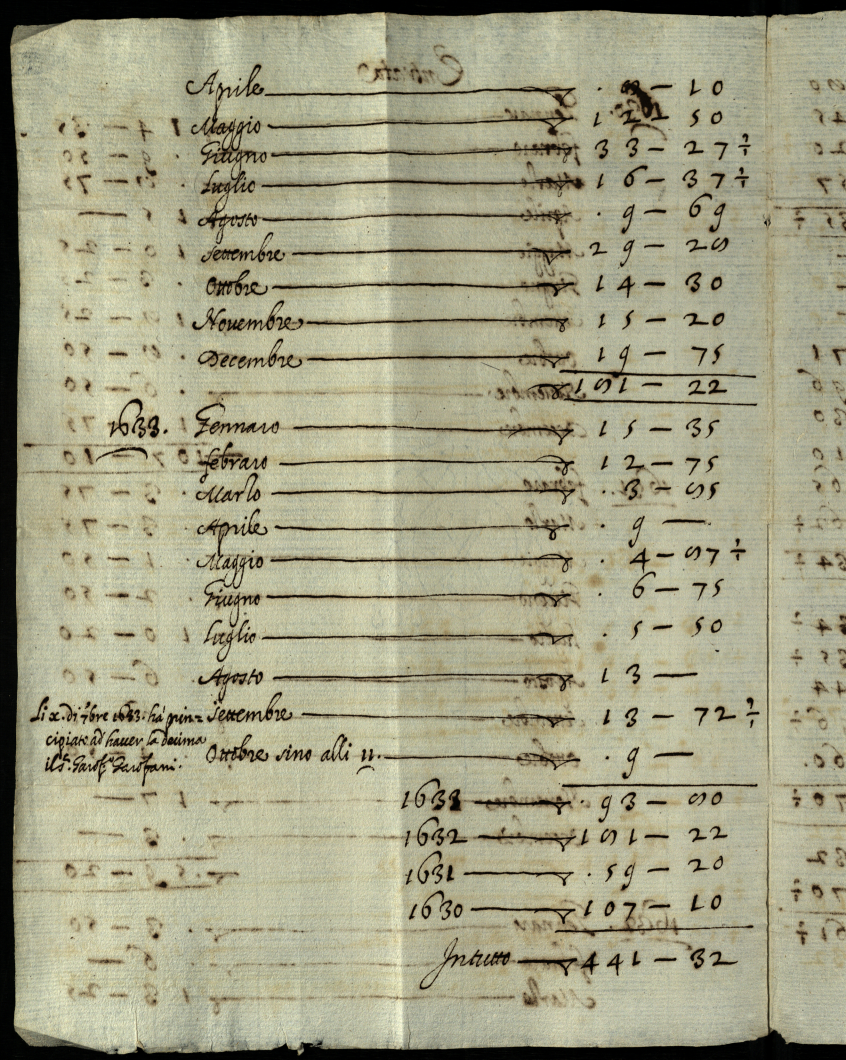 Aprile . 8 — 10
Maggio 12 — 50
Giugno 33 — 27 ½
Luglio 16 — 37 ½
Agosto . 9 — 69
Settembre 29 — 28
Ottobre 14 — 30
Nouembre 15 — 20
Decembre 19 — 75
181 — 22
1633. Gennaro 15 — 35
febraro 12 — 75
Marzo . 3 — 85
Aprile . 9 —
Maggio . 4 — 87 ½
Giugno . 6 — 75
Luglio . 5 — 50
Agosto 13 —
Li x. di 7bre 1633. hà prin=
cipiato ad hauer la decima
il Sr. Garofani.
Settembre 13 — 72 ½
Ottobre sino alli 11. . 9 —
1633 . 93 — 80
1632 181 — 22
1631 . 59 — 20
1630 107 — 10
In tutto 441 — 32